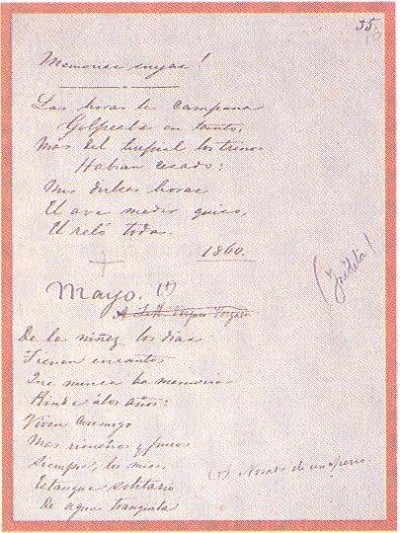 35.
Memorias suyas!
Las horas la campana
Golpeaba en tanto,
Mas del los trinos
Habian cesado:
Mis dulces horas
El ave medir quiso,
El reló todas.
1860.
(Inédita)
Mayo. (1)
A J. M. Vergara Vergara
De la niñez los dias
Tienen encantos
Que nunca la memoria
Rinde á los años:
Viven conmigo
Mas risueños y puros
Siempre, los mios.
(1) Nombre de un perro.
Estanque solitario
De aguas tranquila